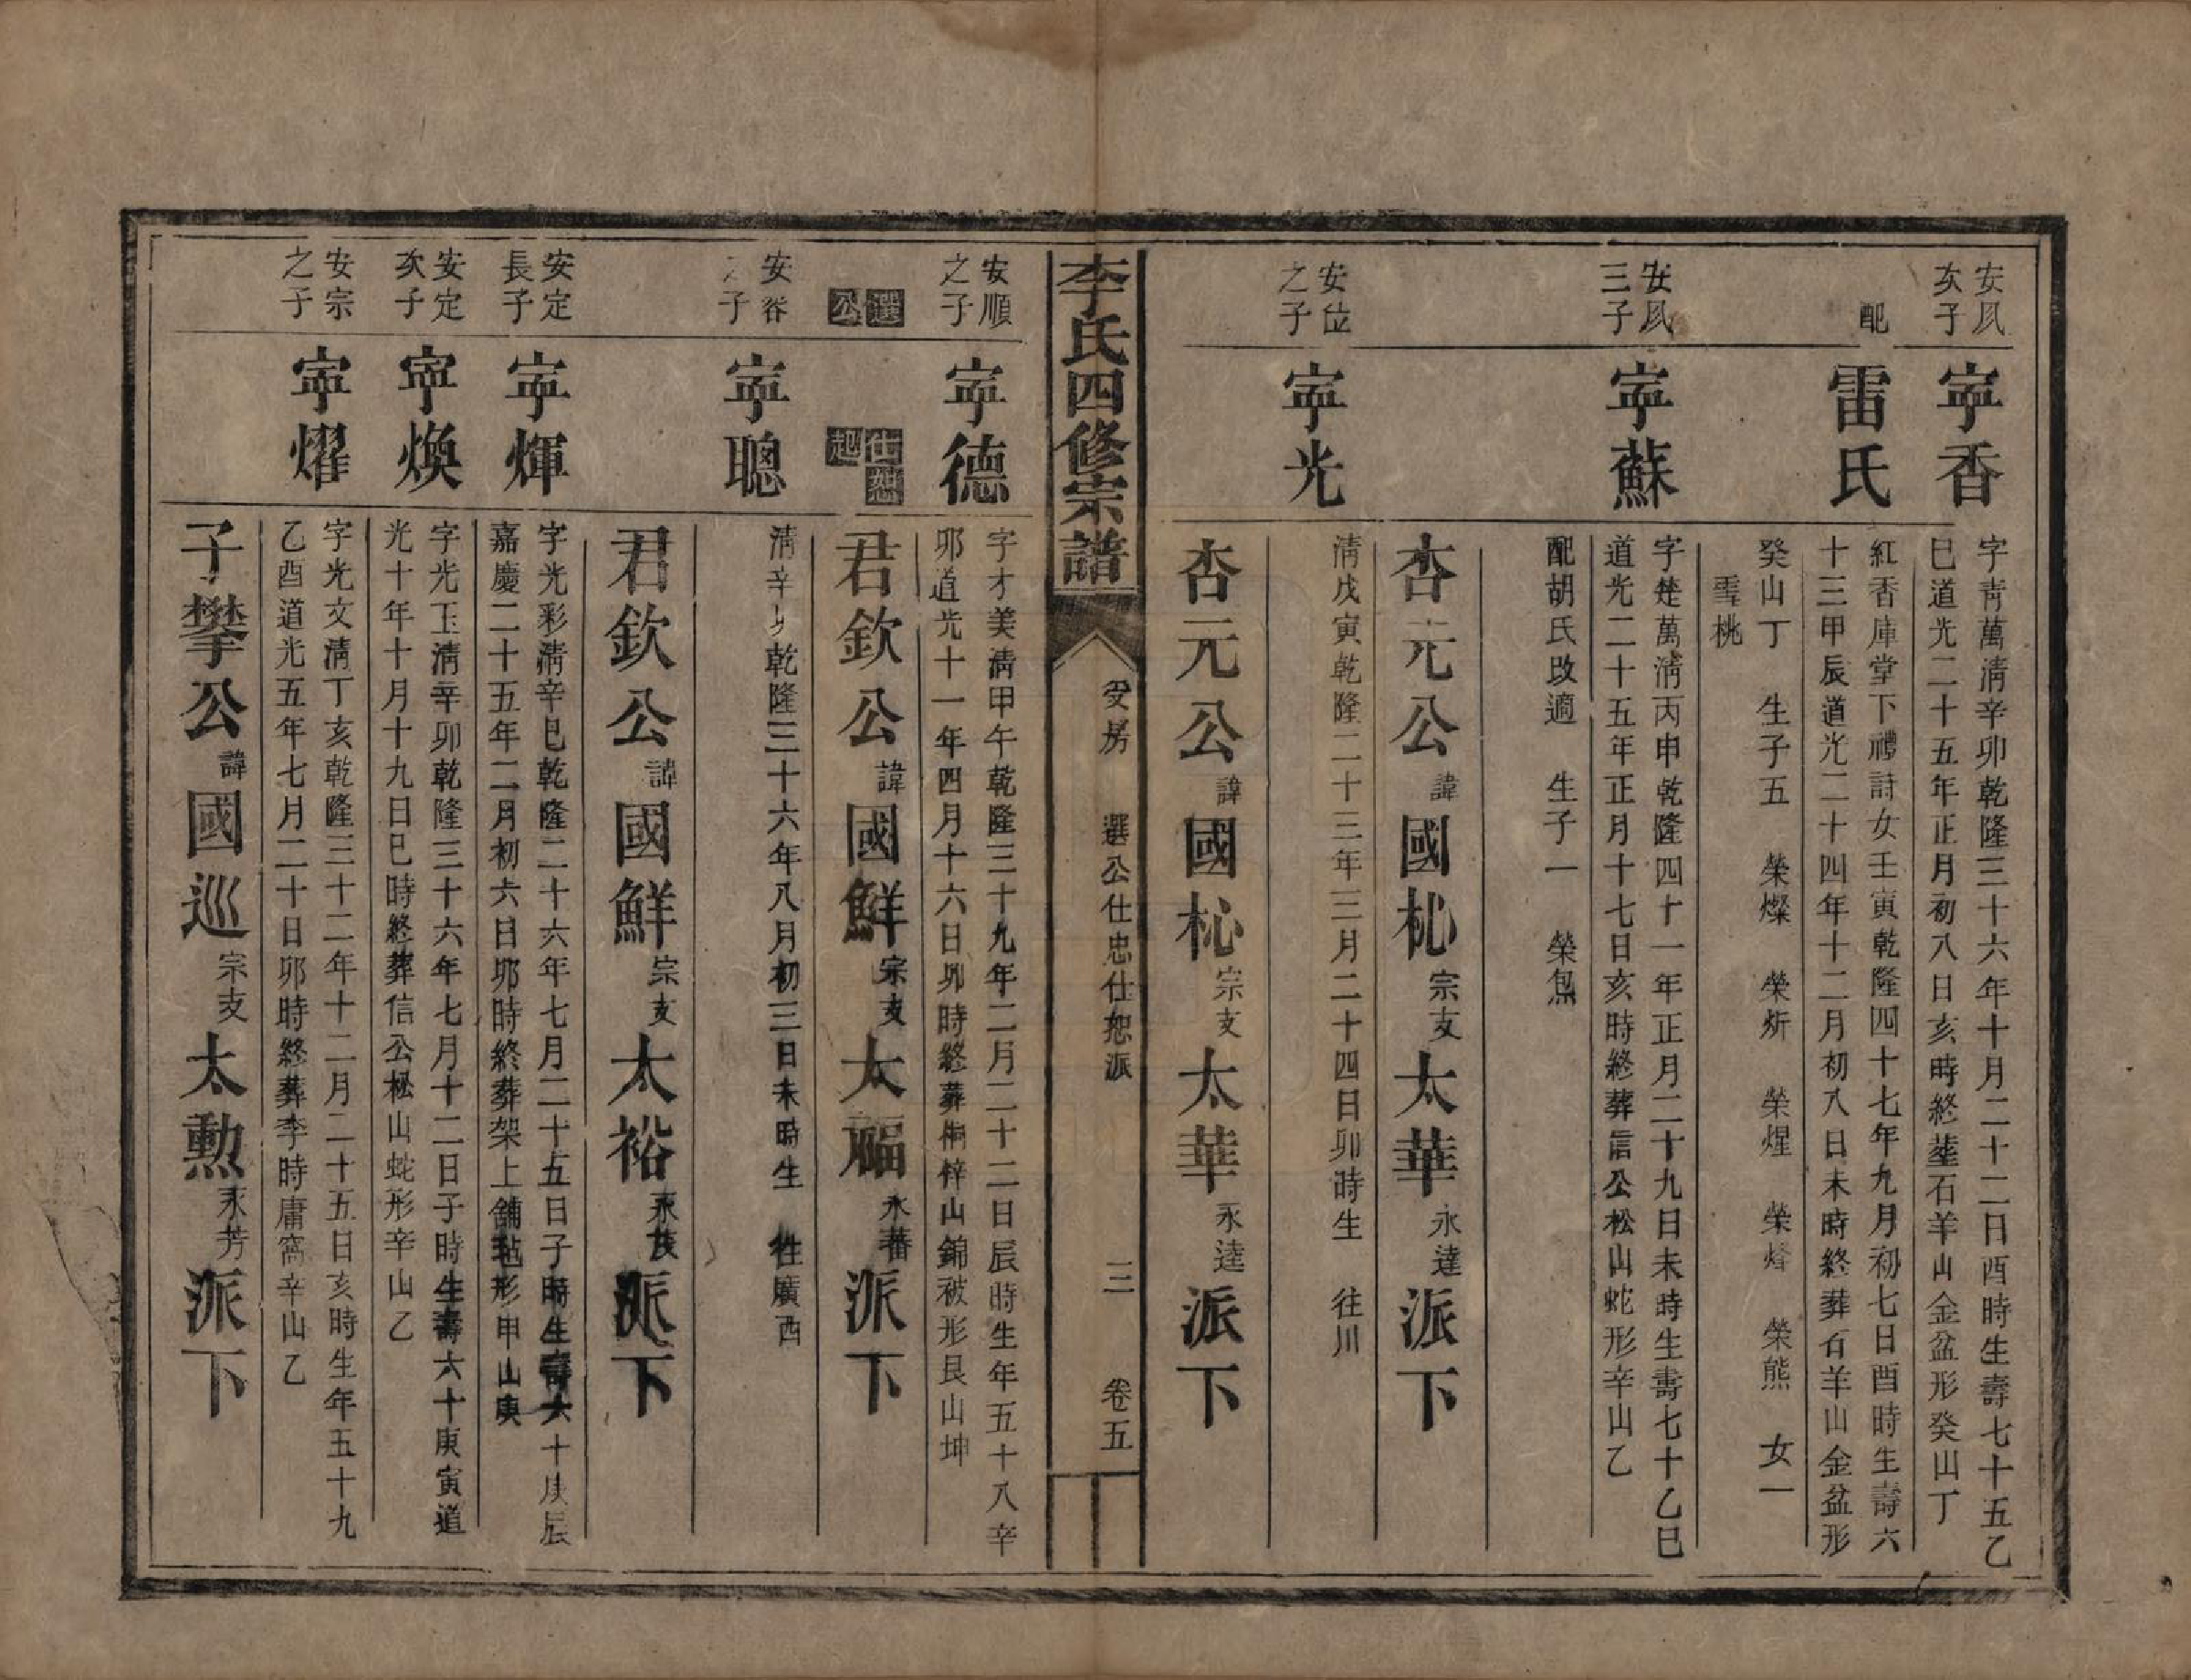 安夙
次子
寕香
字靑萬淸辛卯乾隆三十六年十月二十二日酉時生壽七十五乙
巳道光二十五年正月初八日亥時終塟石羊山金盆形癸山丁
配
雷氏
紅香庫堂下禮詩女壬寅乾隆四十七年九月初七日酉時生壽六
十三甲辰道光二十四年十二月初八日未時終葬石羊山金盆形
癸山丁　生子五　榮燦　榮炘　榮煋　榮㷟　榮熊　女一
雪桃
安夙
三子
寕蘇
字楚萬淸丙申乾隆四十一年正月二十九日未時生壽七十乙巳
道光二十五年正月十七日亥時終葬信公松山蛇形辛山乙
配胡氏改適　生子一　榮炰
杏元公諱國杺宗支太華永達派下
安位
之子
寕光
淸戊寅乾隆二十三年三月二十四日卯時生　往川
杏元公諱國杺宗支太華永逹派下
李氏四修宗譜
受房　選公仕忠仕恕派　三　卷五
安順
之子
寕德
字才美淸甲午乾隆三十九年二月二十二日辰時生年五十八辛
卯道光十一年四月十六日卯時終葬桐梓山錦被形艮山坤
選
公
仕恕
起
君欽公諱國鮮宗支太福永蕃派下
安谷
之子
寕聰
淸辛卯乾隆三十六年八月初三日未時生　往廣西
君欽公諱國鮮宗支太裕永茂派下
安定
長子
寕輝
字光彩淸辛巳乾隆二十六年七月二十五日子時生壽六十庚辰
嘉慶二十五年二月初六日卯時終葬架上舖毡形甲山庚
安定
次子
寕煥
字光玉淸辛卯乾隆三十六年七月十二日子時生壽六十庚寅道
光十年十月十九日巳時終葬信公松山蛇形辛山乙
安宗
之子
寕燿
字光文淸丁亥乾隆三十二年十二月二十五日亥時生年五十九
乙酉道光五年七月二十日卯時終葬李時庸窩辛山乙
子攀公諱國巡宗支太勲永芳派下